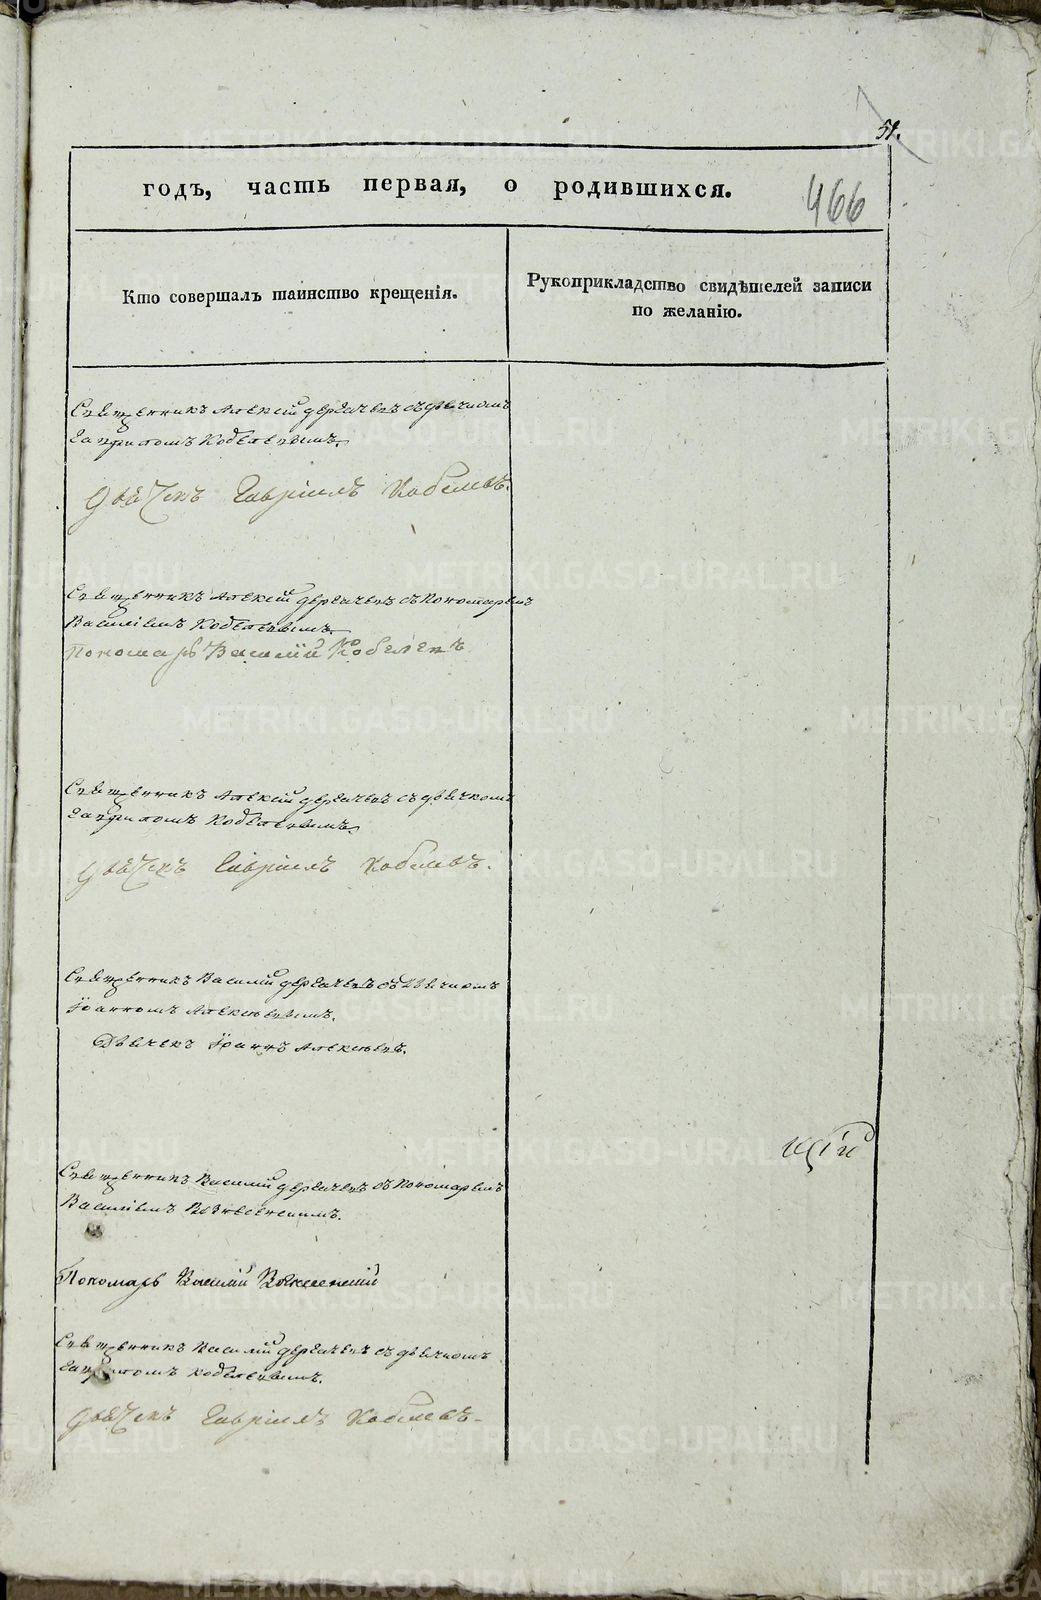 51.
годъ, часть первая, о родившихся.
466
Кто совершалъ таинство крещенія.
Рукоприкладство свидѣтелей записи
по желанію.
Священникъ Алексій Дерягинъ съ дьячкомъ
Гавріиломъ Кобелевымъ.
Дьячекъ Гавріилъ Кобелевъ.
Священникъ Алексій съ пономаремъ
Василіемъ Кобелевымъ
Пономарь Василій Кобелевъ
Священникъ Алексій съ дьячкомъ
Гавріиломъ Кобелевымъ.
Дьячекъ Гавріилъ Кобелевъ.
Священникъ Василій съ дьячкомъ
Іоанномъ Алексѣевымъ.
Дьячекъ Іоаннъ Алексѣевъ.
Священникъ Василій съ пономаремъ
Василіемъ Вознесенскимъ.
Пономарь Василій Вознесенскій
Священникъ Василій съ дьячкомъ
Гавріиломъ Кобелевымъ.
Дьячекъ Гавріилъ Кобелевъ
METRIKI.GASO-URAL.RU